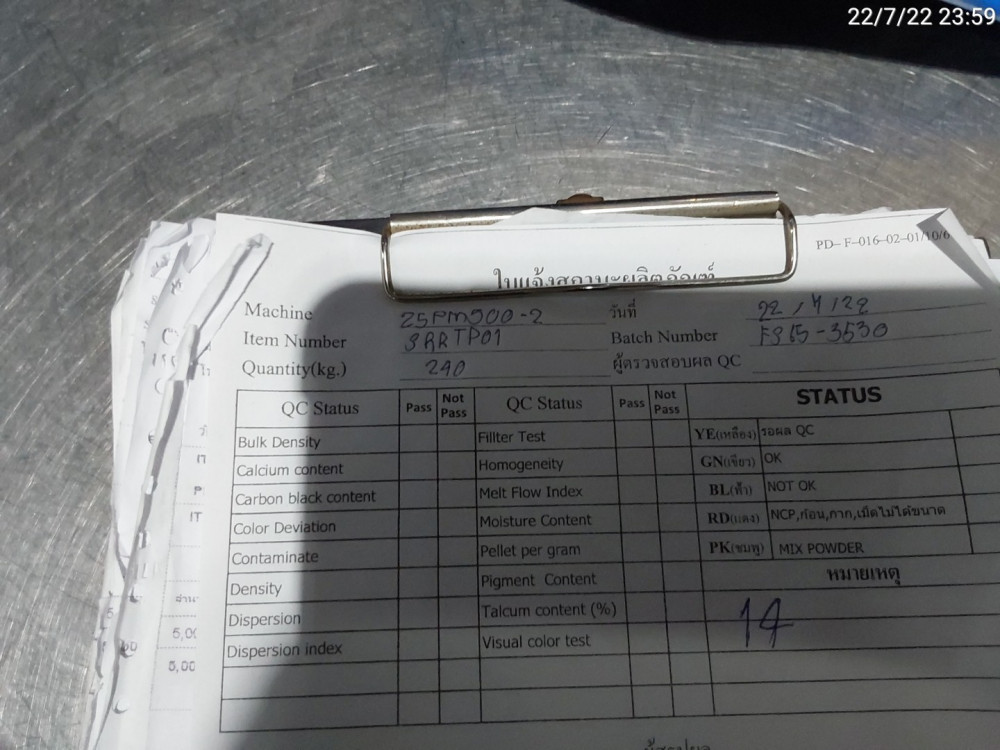 22/7/22 23:59
PD-F-016-02-01/10/6
ใบแจ้งสถานะผลิตภัณฑ์
Machine 25PM500-2 วันที่ 22/7/22
Item Number 3RRTP01 Batch Number FS65-3530
Quantity(kg.) 240 ผู้ตรวจสอบผล QC
QC Status Pass Not Pass QC Status Pass Not Pass STATUS
Bulk Density Fillter Test YE(เหลือง) รอผล QC
Calcium content Homogeneity GN(เขียว) OK
Carbon black content Melt Flow Index BL(ฟ้า) NOT OK
Color Deviation Moisture Content RD(แดง) NCP,ก้อน,กาก,เม็ดไม่ได้ขนาด
Contaminate Pellet per gram PK(ชมพู) MIX POWDER
Density Pigment Content หมายเหตุ
Dispersion Talcum content (%) 14
Dispersion index Visual color test
5,00
5,00